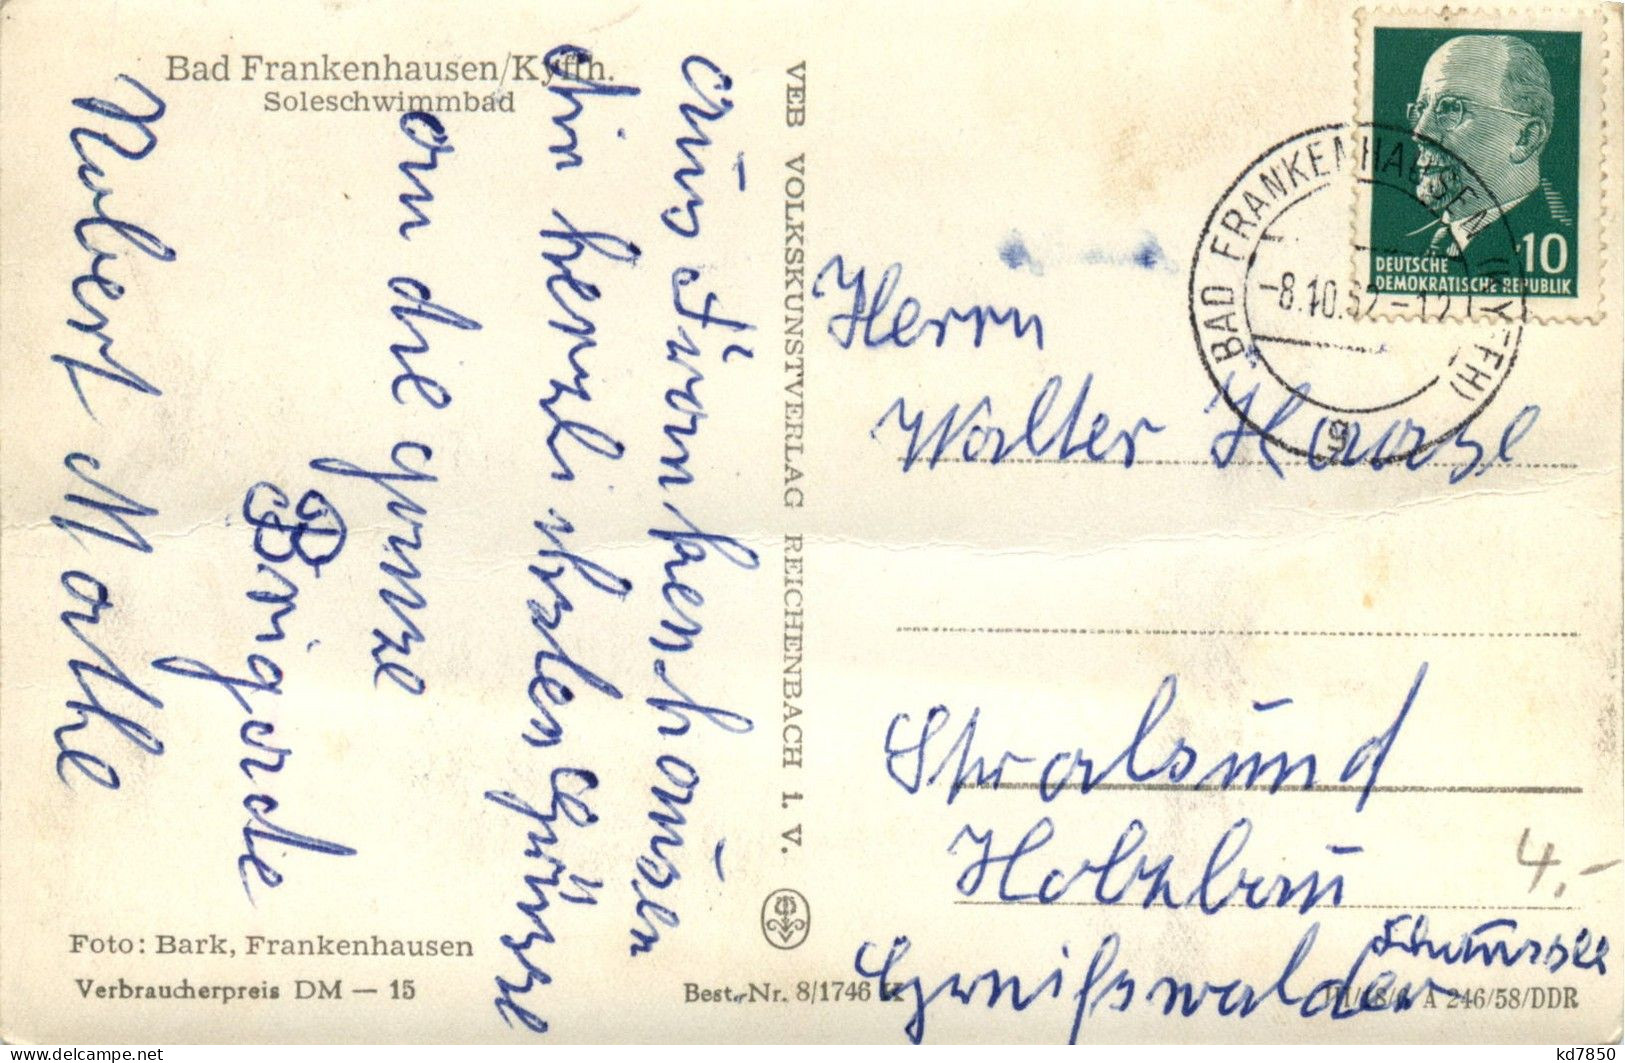 Bad Frankenhausen/Kyffh.
Soleschwimmbad
Aus Frankenhausen
die herzlichsten Grüsse
an die ganze
Brigade
Robert Mathe
Foto: Bark, Frankenhausen
Verbraucherpreis DM — 15
VEB VOLKSKUNSTVERLAG REICHENBACH i. V.
Best.-Nr. 8/1746 K
DEUTSCHE
DEMOKRATISCHE REPUBLIK
10
BAD FRANKENHAUSEN (KYFFH)
-8.10.62-12
g
Herrn
Walter Haase
Stralsund
Holzbau
Greifswalder
Chaussee
4.-
A 246/58/DDR
kd7850